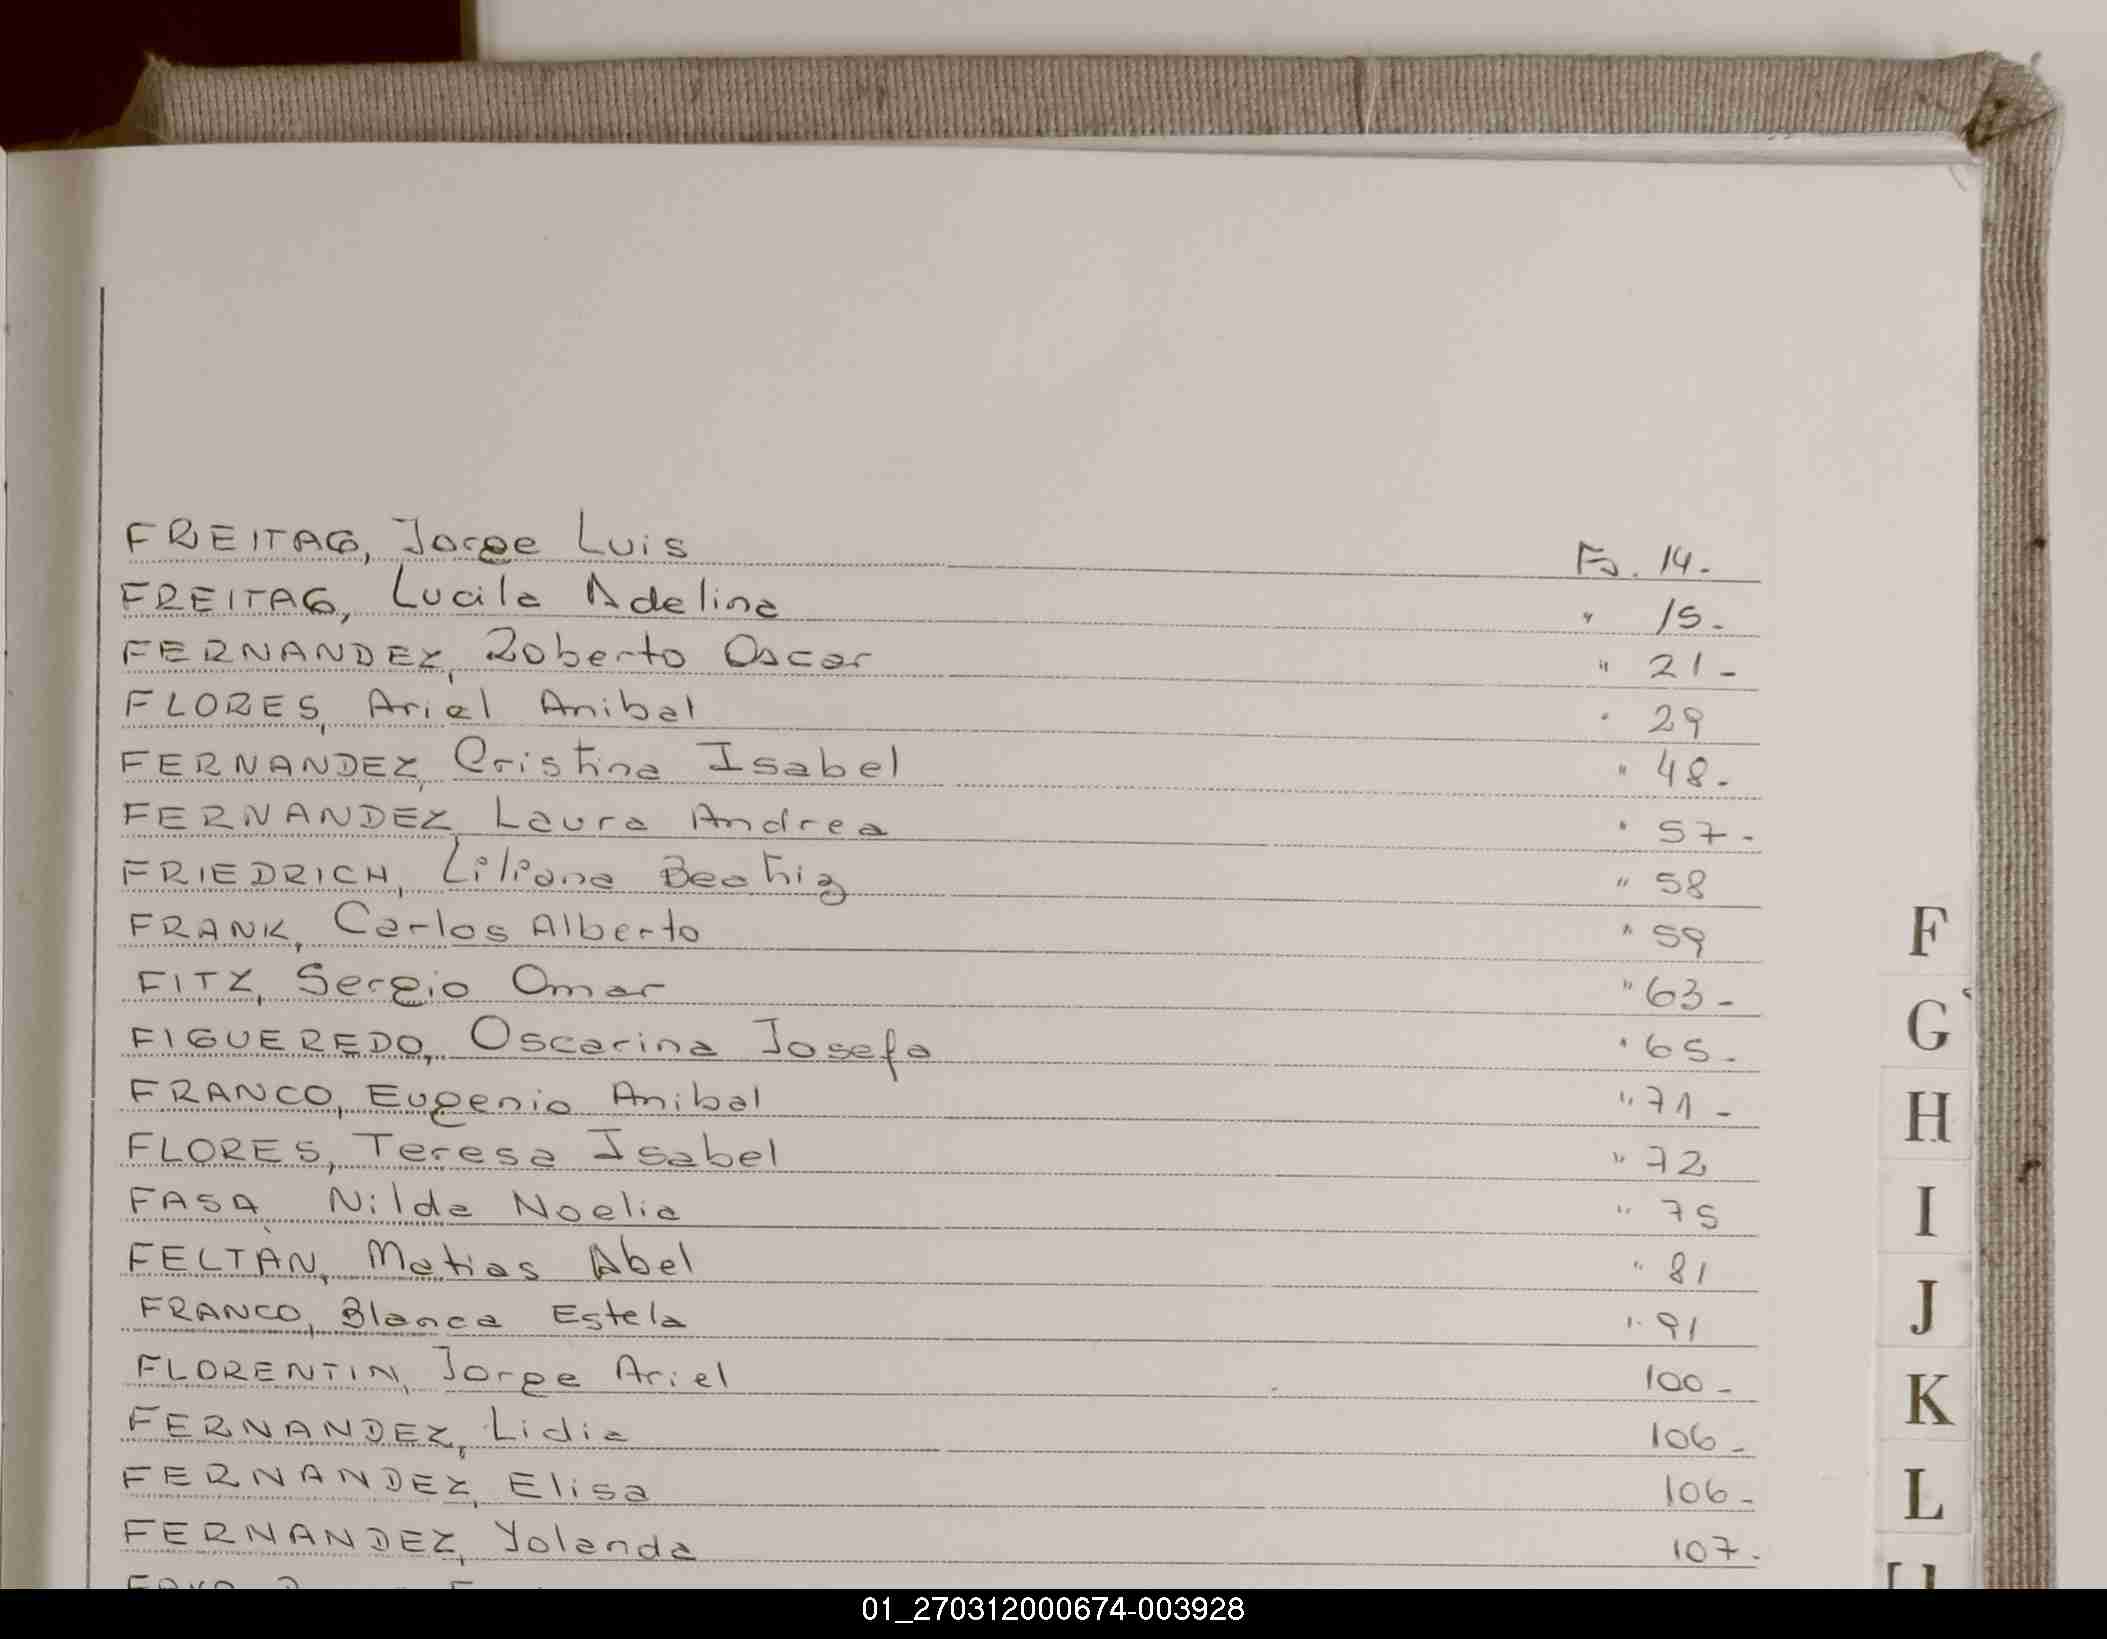 FREITAG, Jorge Luis Fs. 14.
FREITAG, Lucila Adelina " 15.
FERNANDEZ, Roberto Oscar " 21-
FLORES, Ariel Anibal " 29
FERNANDEZ, Cristina Isabel " 48.
FERNANDEZ, Laura Andrea " 57-
FRIEDRICH, Liliana Beatriz " 58
FRANK, Carlos Alberto " 59
FITZ, Sergio Omar " 63-
FIGUEREDO, Oscarina Josefa " 65-
FRANCO, Eugenio Anibal " 71-
FLORES, Teresa Isabel " 72
FASA, Nilda Noelia " 75
FELTAN, Matias Abel " 81
FRANCO, Blanca Estela " 91
FLORENTIN, Jorge Ariel 100-
FERNANDEZ, Lidia 106-
FERNANDEZ, Elisa 106-
FERNANDEZ, Yolanda 107-
F
G
H
I
J
K
L
01_270312000674-003928